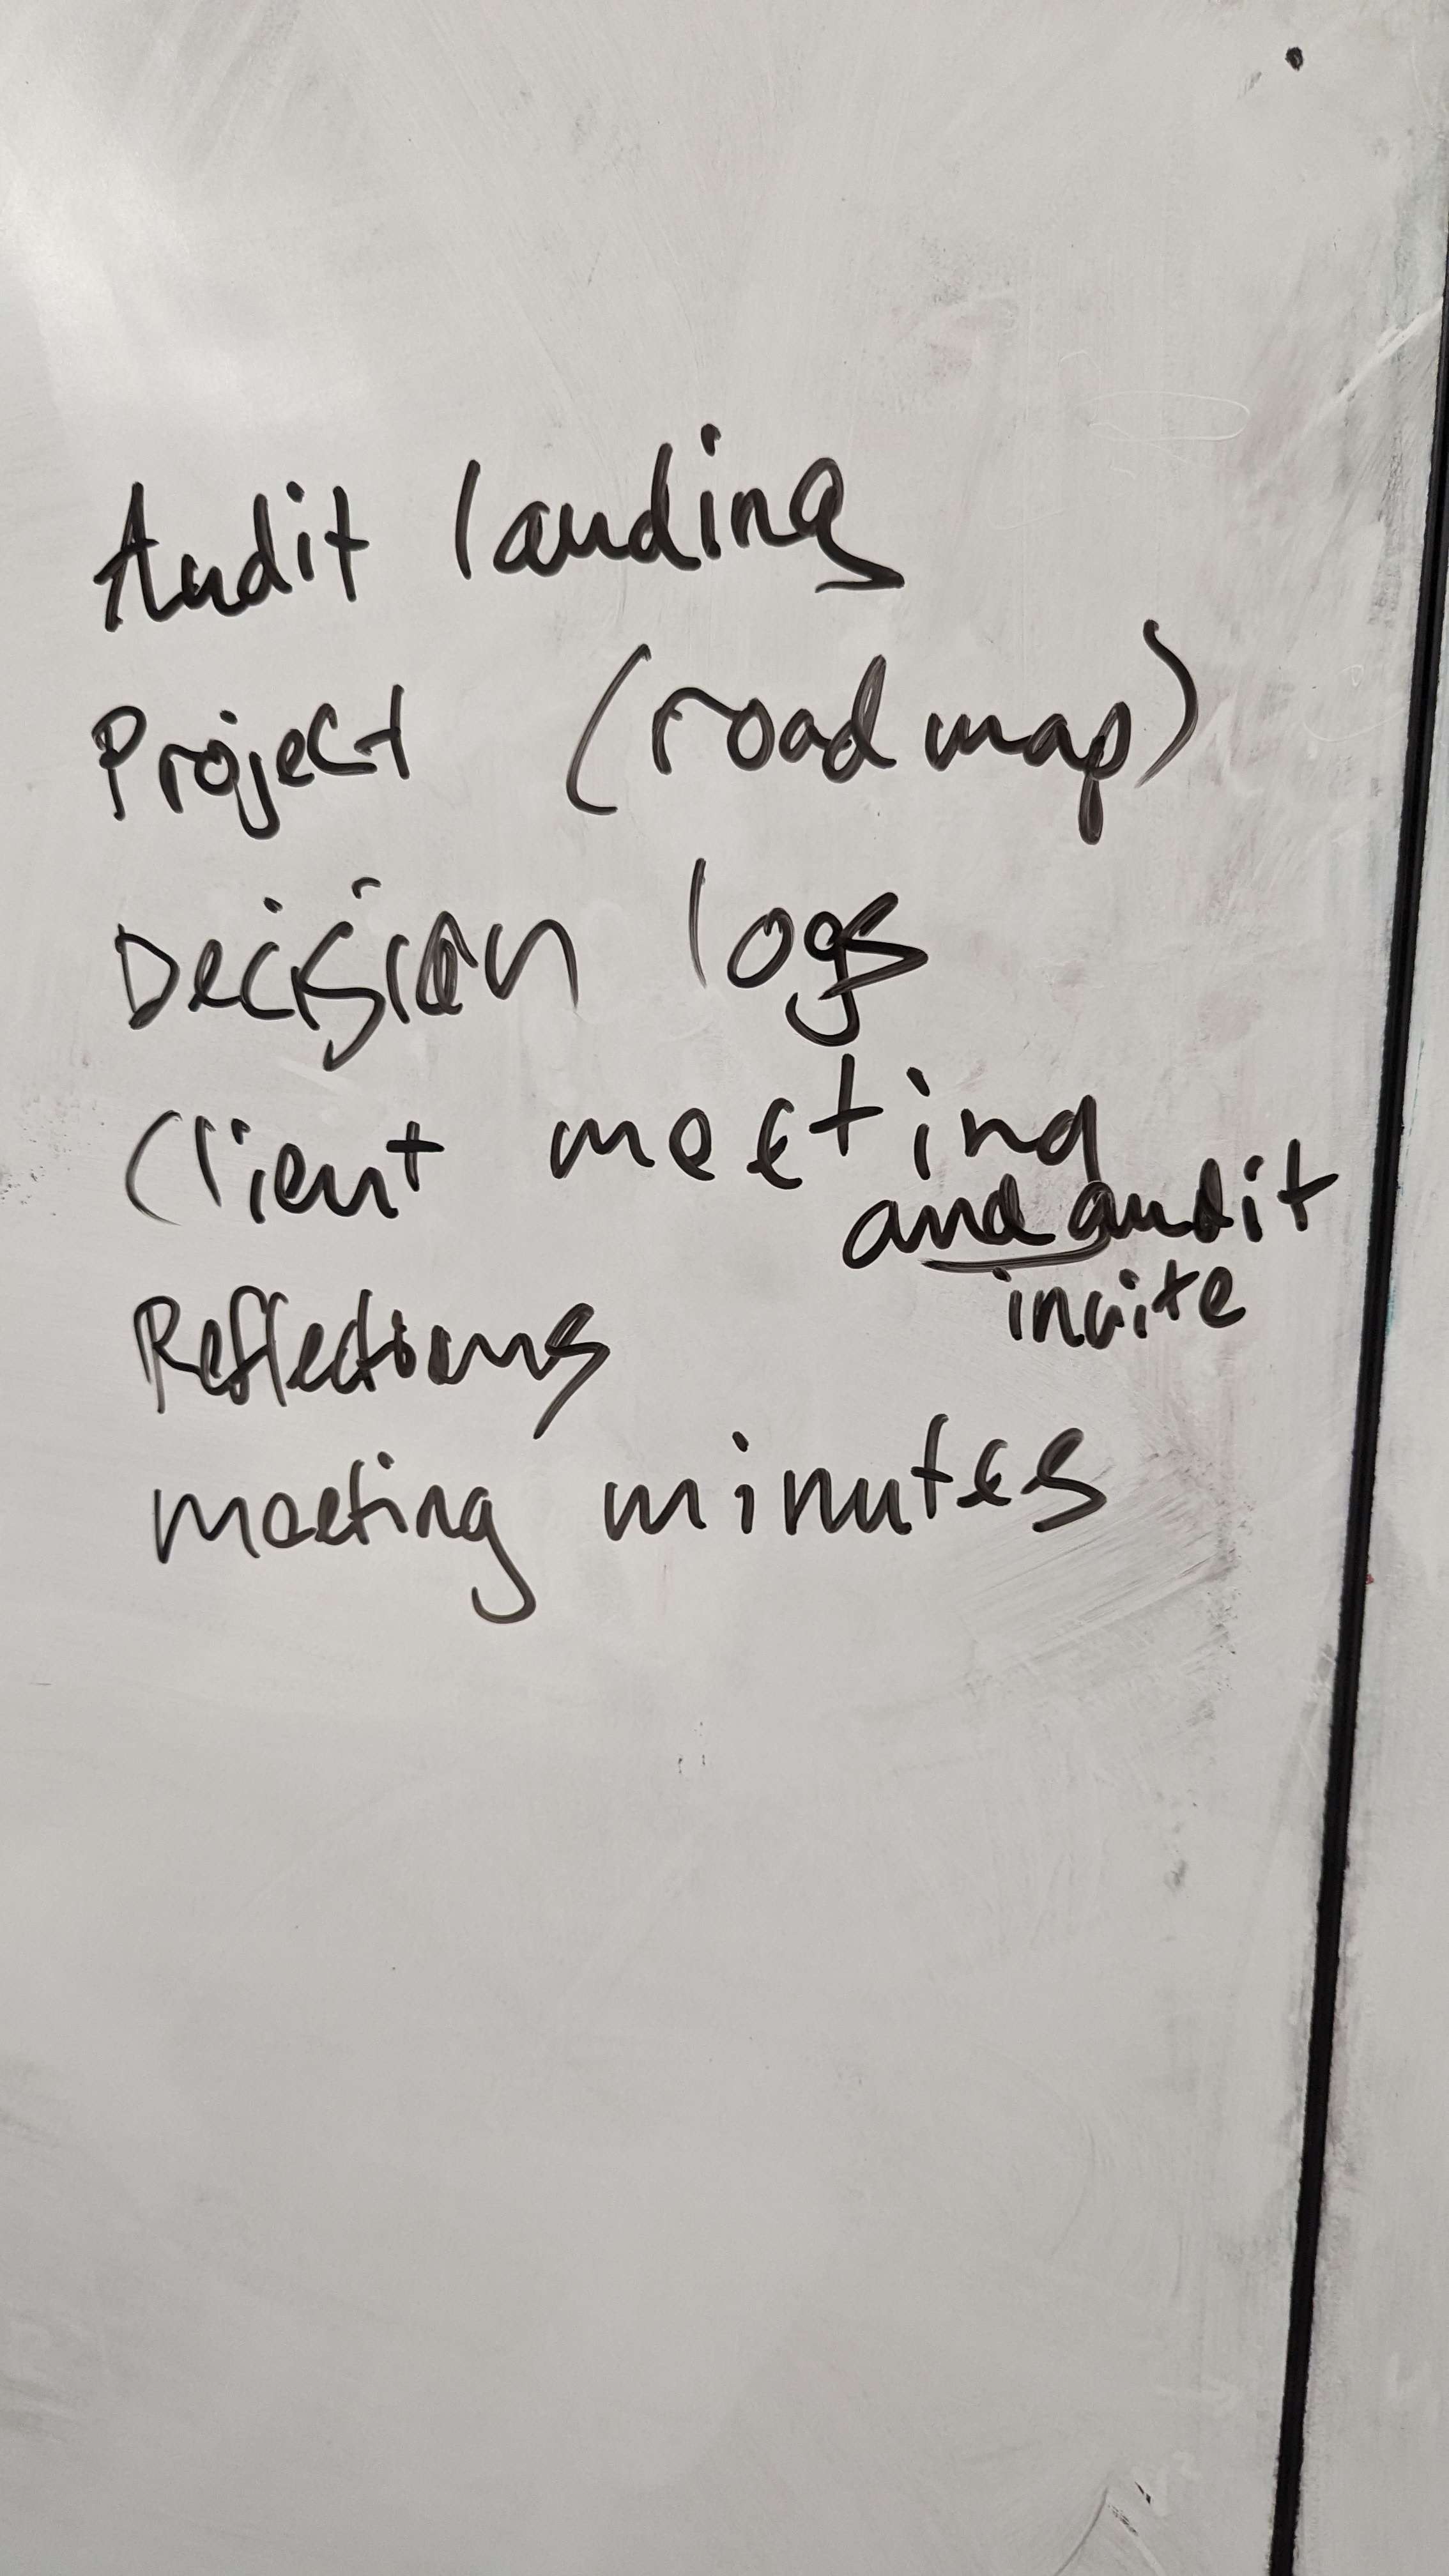 Audit landing
Project (roadmap)
Decision logs
Client meeting
and audit
invite
Reflections
meeting minutes